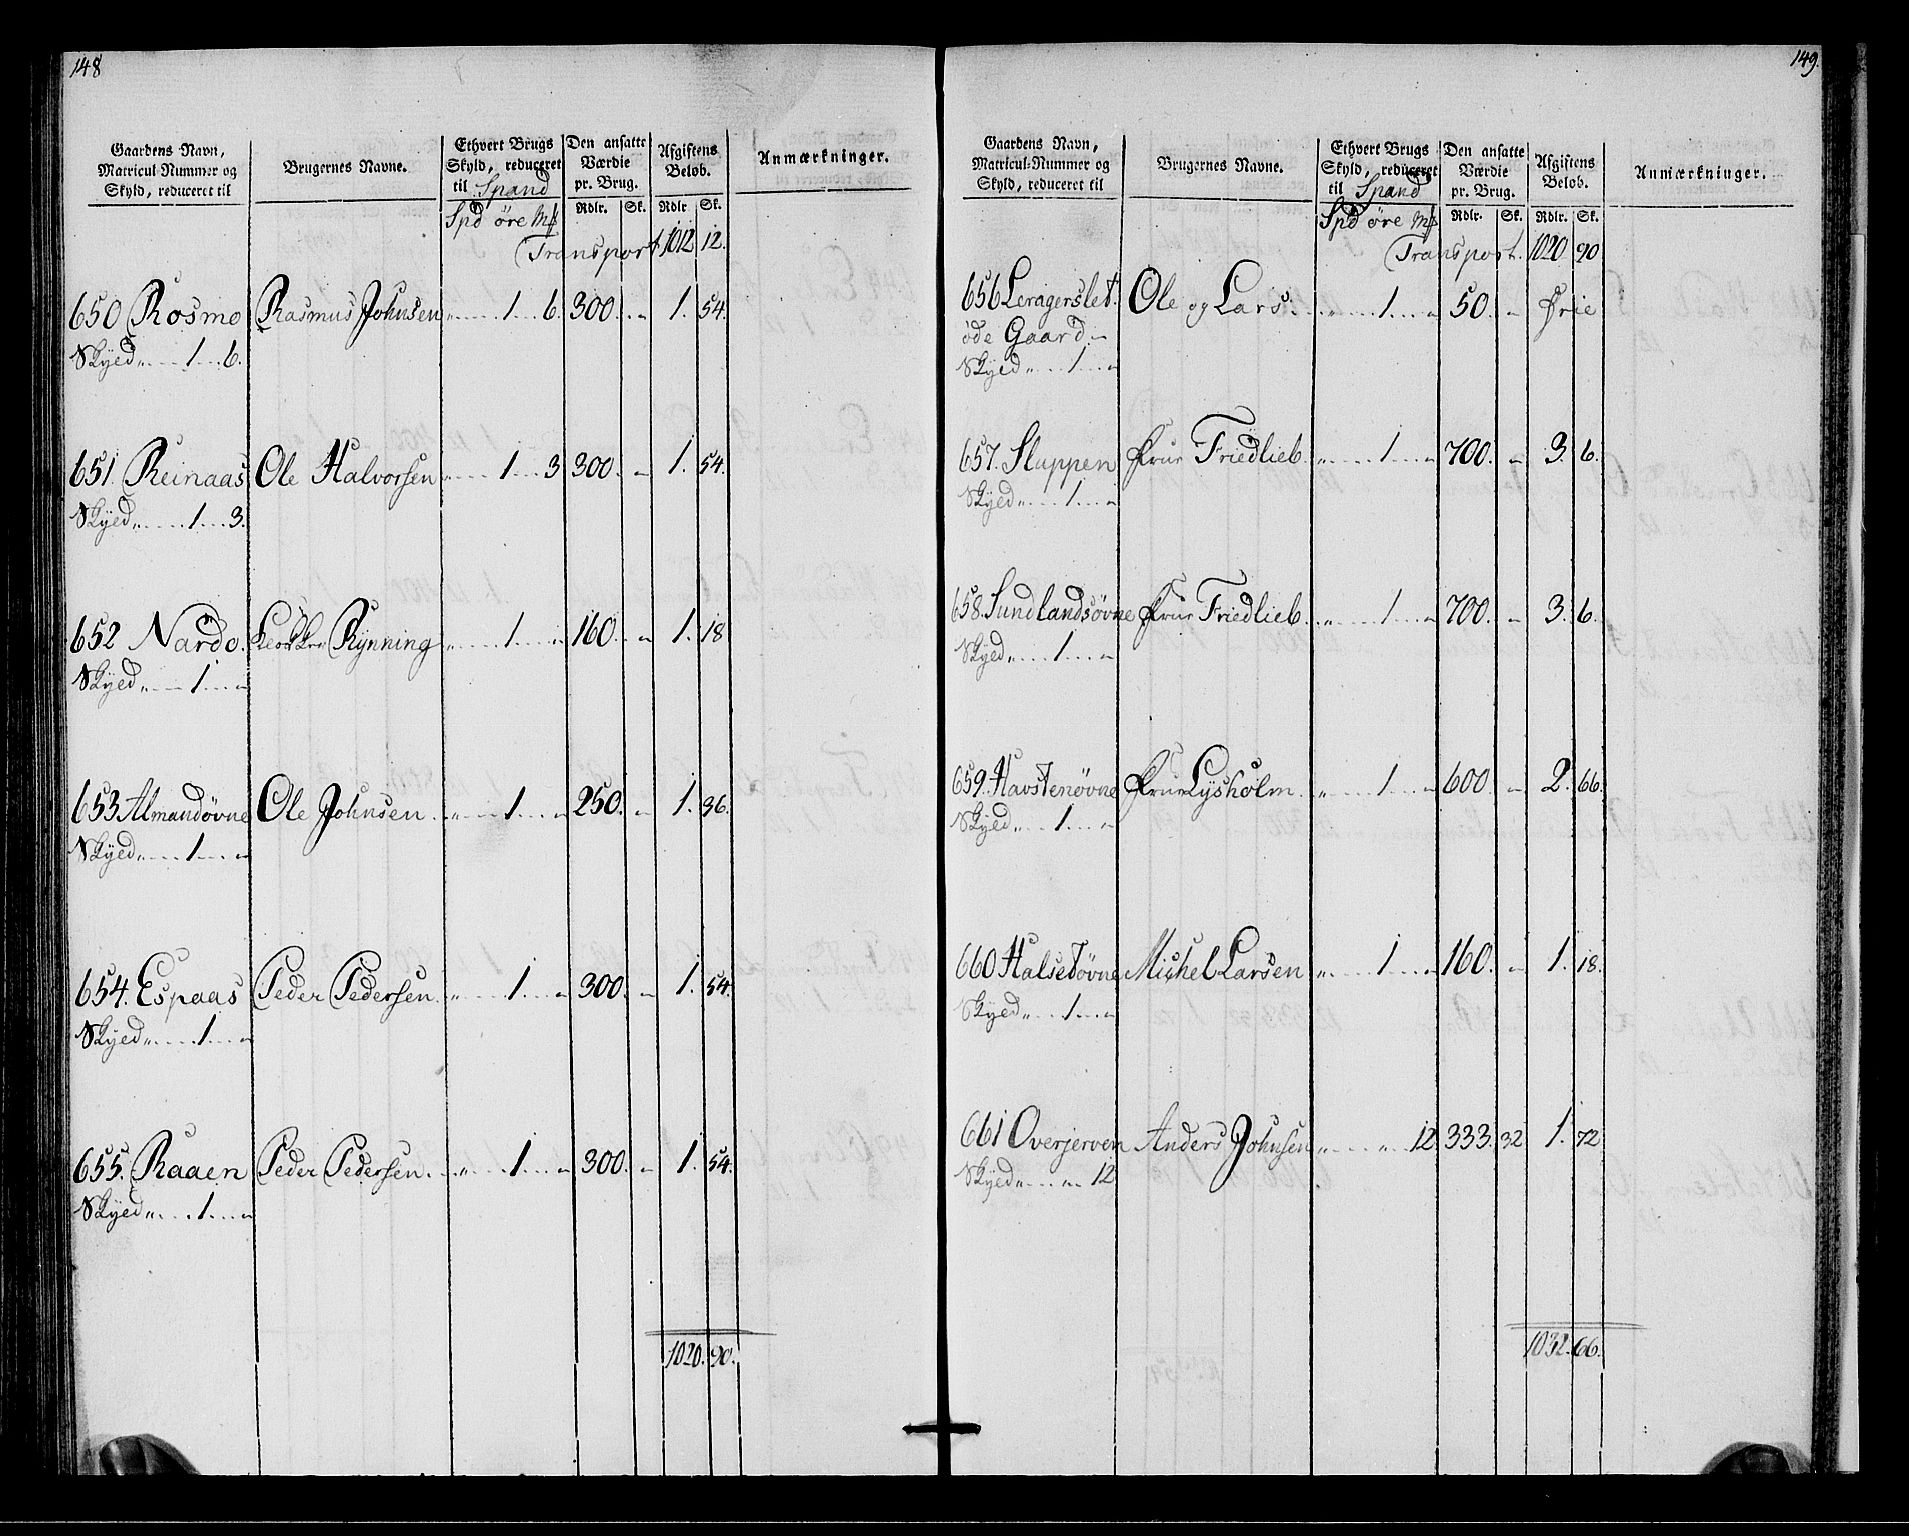 148
Gaardens Navn, Matricul-Nummer og Skyld, reduceret til | Brugernes Navne. | Ethvert Brugs Skyld, reduceret til Spand | Den ansatte Værdie pr. Brug. | Afgiftens Beløb. | Anmærkninger.
Spd øre Mf | Rdlr. | Sk. | Rdlr | Sk.
Transport 1012 12.
650 Rosmo Rasmus Johnsen „ 1 6. 300. „ 1. 54.
Skyed „ 1 6.
651. Reinaas Ole Halvorsen „ 1 3 300. „ 1. 54.
Skyed „ 1 3.
652 Nardo. Rynning „ 1 „ 160. „ 1. 18
Skyed „ 1 „
653 Almandøvne Ole Johnsen „ 1 „ 250. „ 1. 36.
Skyed „ 1 „
654. Espaas Peder Pedersen. „ 1 „ 300. „ 1. 54.
Skyed „ 1 „
655. Raaen Peder Pedersen. „ 1 „ 300. „ 1. 54.
Skyed „ 1 „
1020. 90.
149.
Gaardens Navn, Matricul-Nummer og Skyld, reduceret til | Brugernes Navne. | Ethvert Brugs Skyld, reduceret til Spand | Den ansatte Værdie pr. Brug. | Afgiftens Beløb. | Anmærkninger.
Spd øre Mf | Rdlr. | Sk. | Rdlr. | Sk.
Transport. 1020 90
656 Leragerslet. Ole og Lars. „ 1 „ 50. „ Frie
øde Gaard „
Skyed „ 1 „
657. Sluppen Frue Friedlieb. „ 1 „ 700. „ 3. 6.
Skyed „ 1 „
658. Sundlandsøvne Frue Friedlieb. „ 1 „ 700. „ 3. 6.
Skyed „ 1 „
659. Havstenøvne Frue Lysholm. „ 1 „ 600. „ 2. 66.
Skyed „ 1 „
660 Halsetøvne Michel Larsen „ 1 „ 160. „ 1. 18.
Skyed „ 1 „
661 Overjerven Anders Johnsen „ „ 12. 333. 32 1. 72
Skyed „ „ 12
1032. 66.